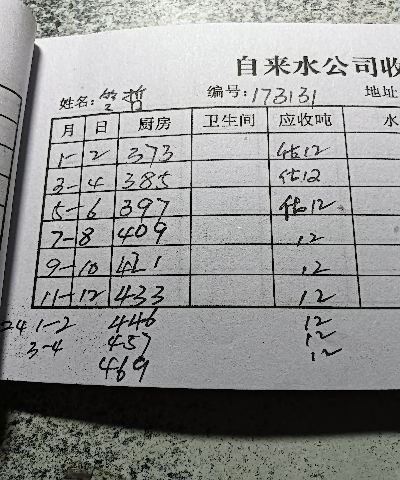 自来水公司收
姓名: 哲 编号: 173131 地址
月 日 厨房 卫生间 应收吨 水
1-2 373 估12
3-4 385 估12
5-6 397 估12
7-8 409 12
9-10 421 12
11-12 433 12
24 1-2 446 12
3-4 457 12
469 12